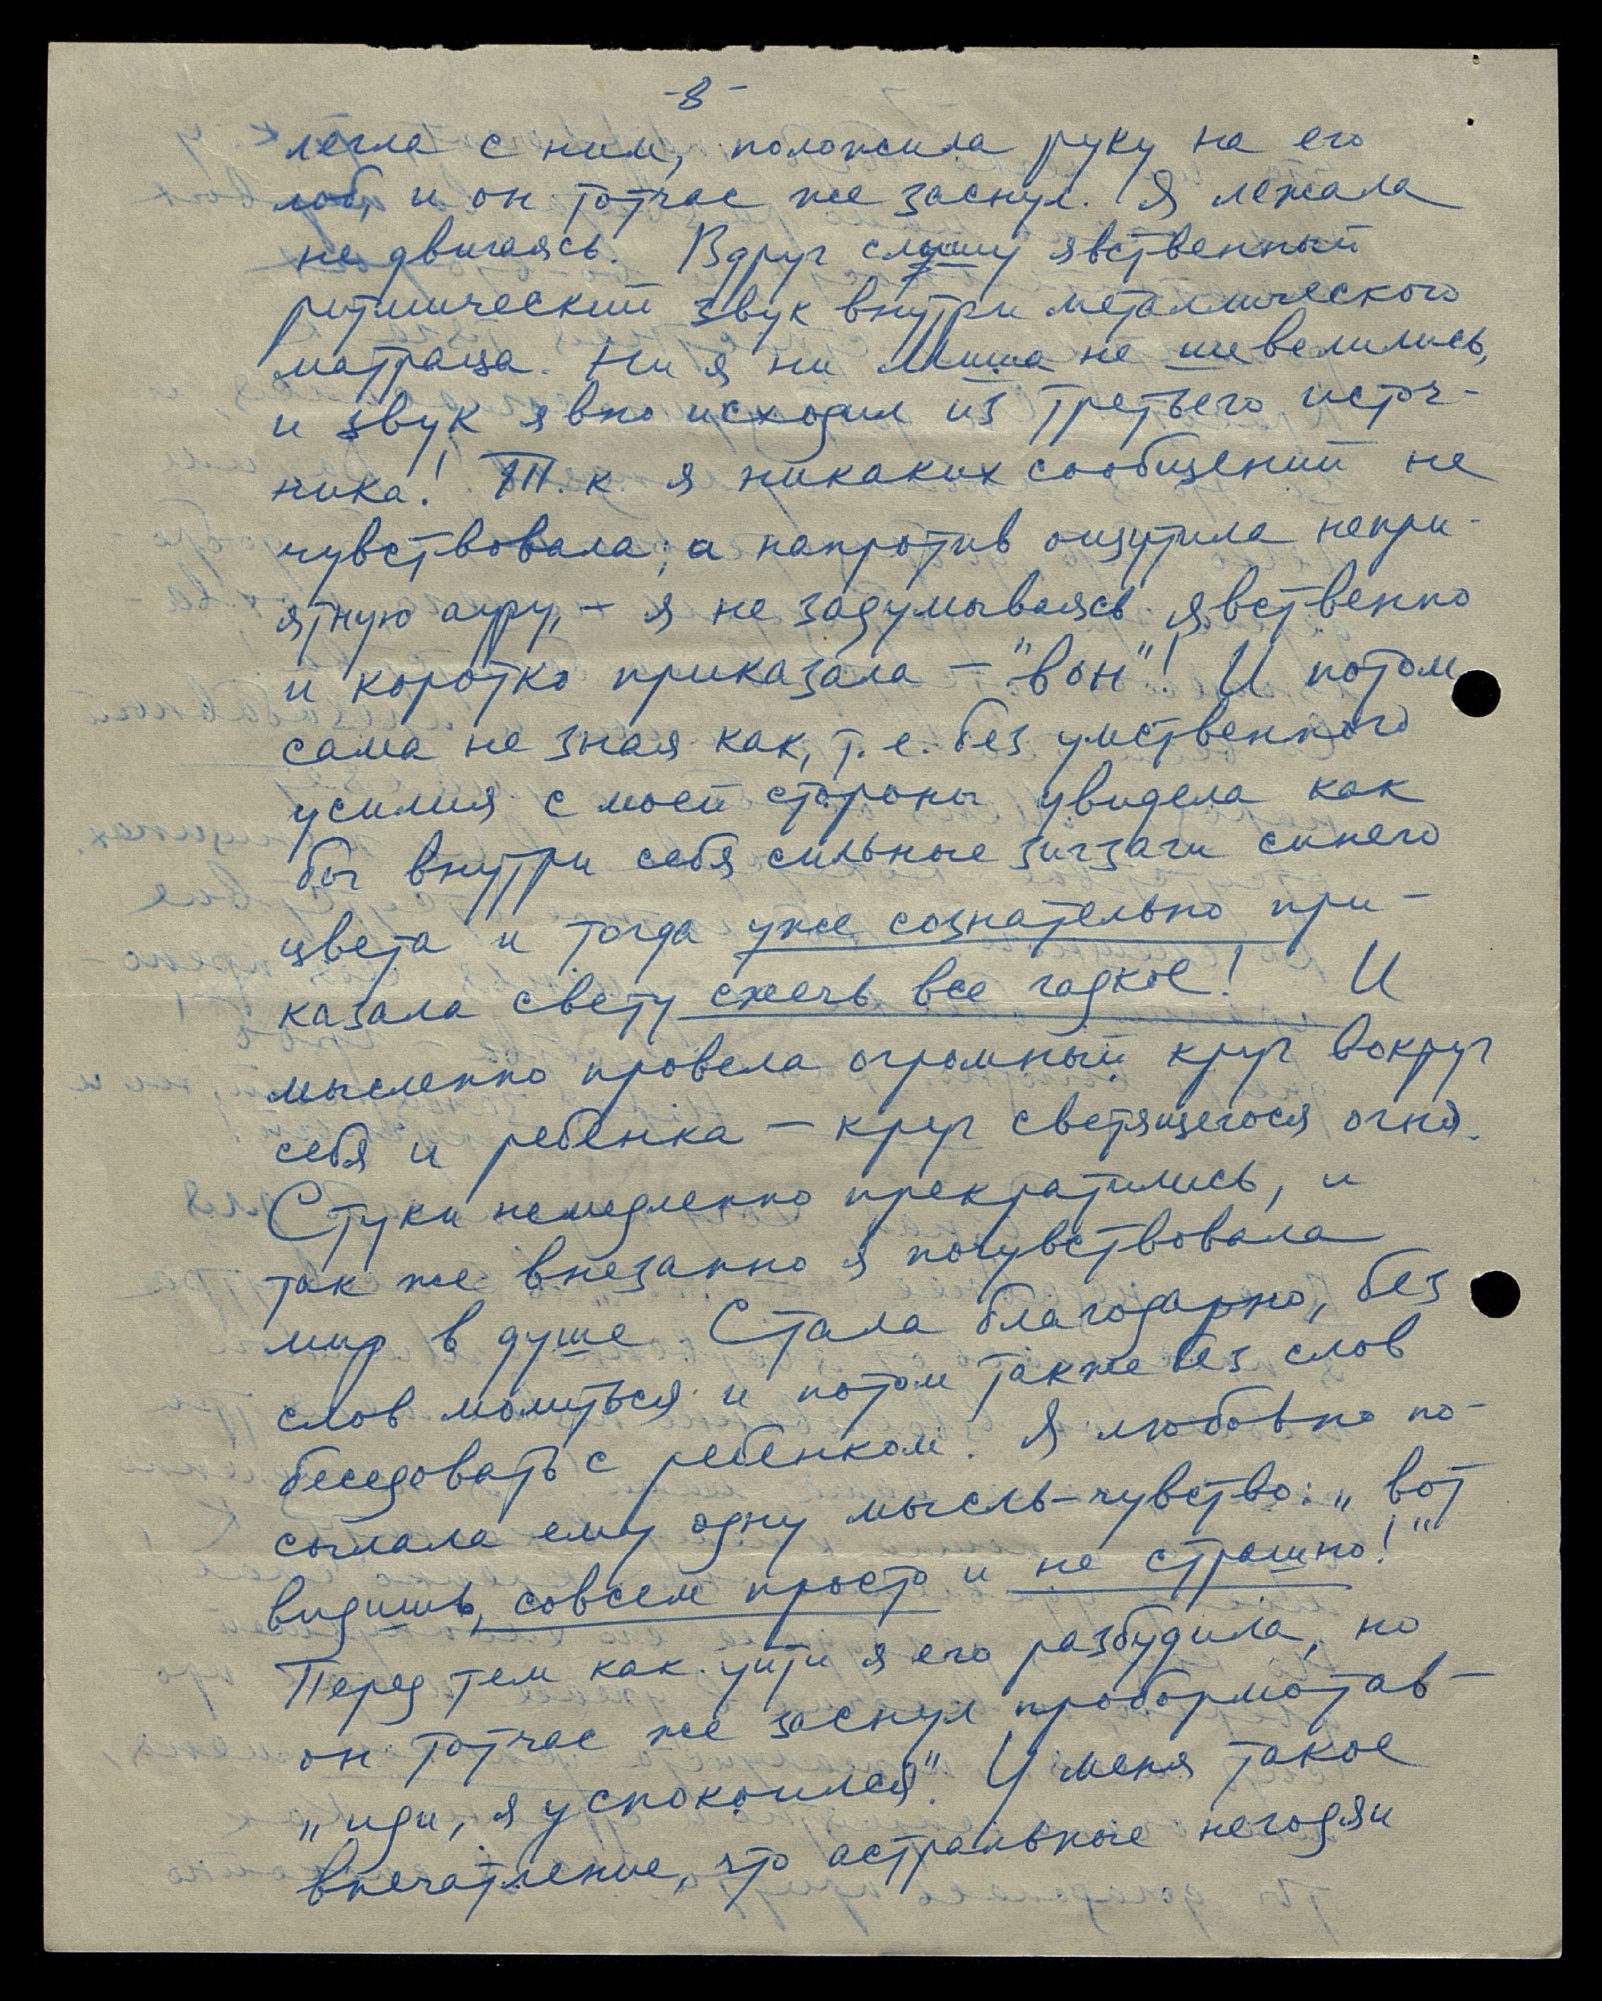 -8-
легла с ним, положила руку на его
лоб, и он тотчас же заснул. Я лежала
не двигаясь. Вдруг слышу явственный
ритмический звук внутри металлического
матраца. Ни я ни Миша не шевелились,
и звук явно исходил из третьего источ-
ника! Т.к. я никаких сообщений не
чувствовала, а напротив ощутила непри-
ятную ауру, – я не задумываясь явственно
и коротко приказала – "вон"! И потом
сама не зная как, т.е. без умственного
усилия с моей стороны увидела как
бы внутри себя сильные зигзаги синего
цвета и тогда уже сознательно при-
казала свету сжечь все гадкое! И
мысленно провела огромный круг вокруг
себя и ребенка – круг светящегося огня.
Стуки немедленно прекратились, и
так же внезапно я почувствовала
мир в душе. Стала благодарно, без
слов молиться и потом также без слов
беседовать с ребенком. Я любовно по-
сылала ему одну мысль-чувство: „вот
видишь, совсем просто и не страшно!"
Перед тем как уйти я его разбудила, но
он тотчас же заснул пробормотав –
„иди, я успокоился". У меня такое
впечатление, что астральные негодяи